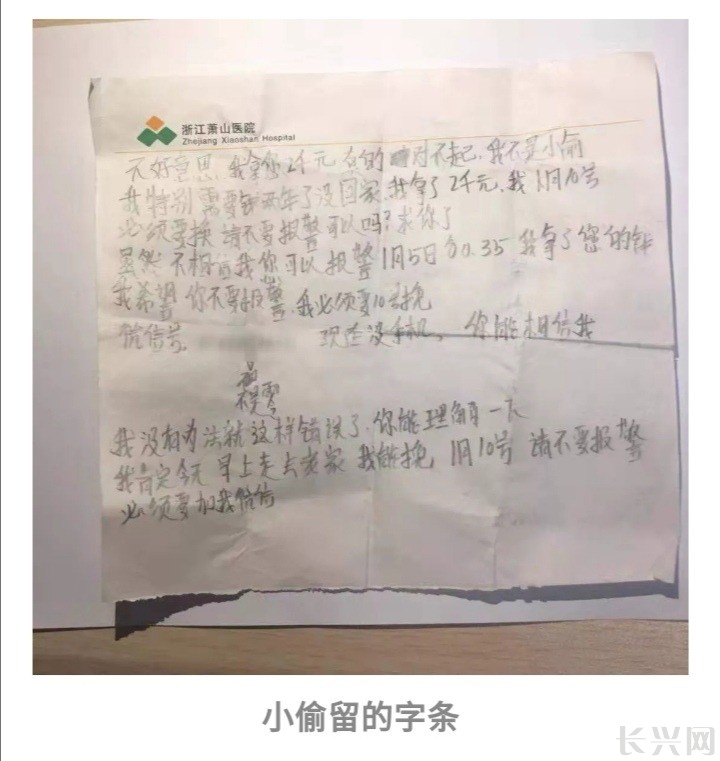 浙江萧山医院
Zhejiang Xiaoshan Hospital
不好意思,我拿您2千元 真的 对不起,我不是小偷
我特别需要钱两年了没回家,我拿了2千元,我1月10号
必须要换 请不要报警可以吗?求你了
虽然不相信我你可以报警1月5日 0.35 我拿了您的钱
我希望 你不要报警,我必须要10号换
微信号, 现在没手机, 你能相信我
我没有办法就这样错误了,你能理解一下
我肯定今天 早上走去老家 我能换 1月10号 请不要报警
必须要加我微信
小偷留的字条
长兴网